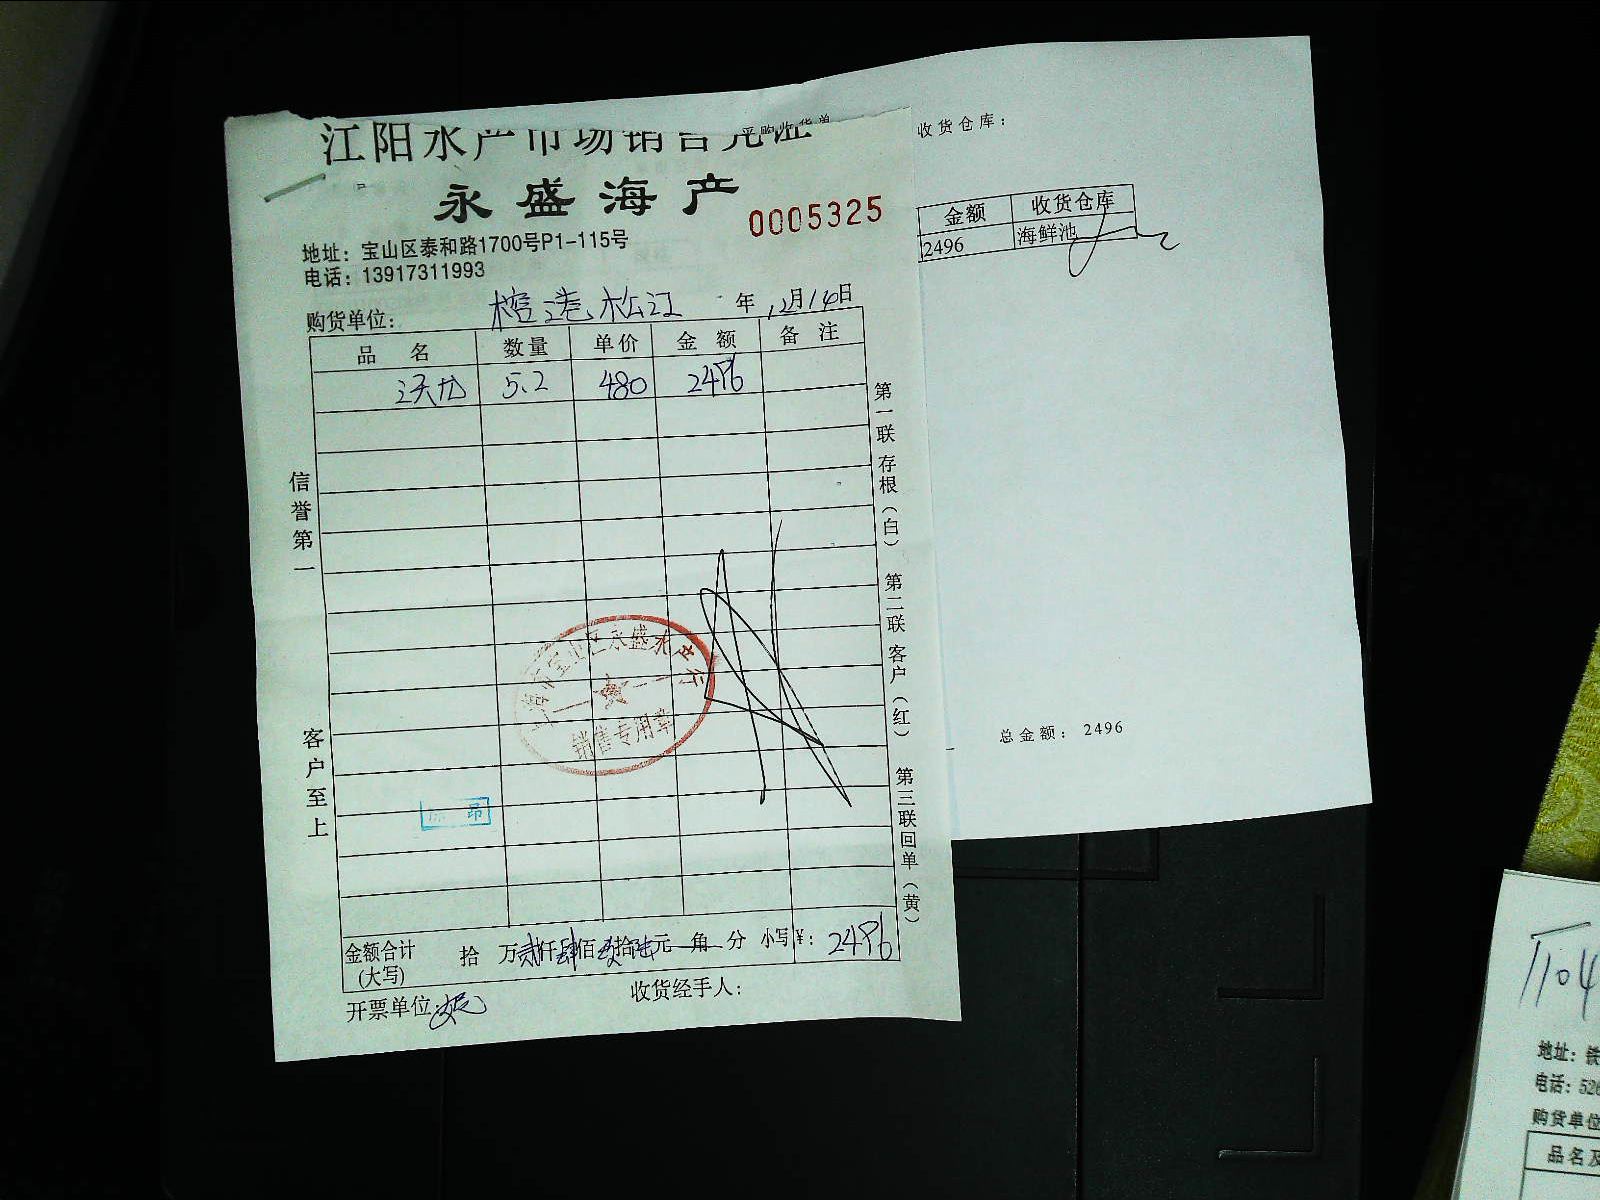 江阳水产市场销售凭证
采购收货单
收货仓库：
永盛海产
0005325
地址：宝山区泰和路1700号P1-115号
电话：13917311993
购货单位：榕港松江 年12月14日
品名 数量 单价 金额 备注
沃龙 5.2 480 2496
信誉第一
客户至上
第一联存根（白） 第二联客户（红） 第三联回单（黄）
上海市宝山区永盛水产行
销售专用章
昂
金额合计（大写） 拾万贰仟肆佰玖拾陆元角分 小写¥：2496
开票单位：
收货经手人：
金额 收货仓库
2496 海鲜池
总金额：2496
1104
地址：铁
电话：526
购货单位
品名及